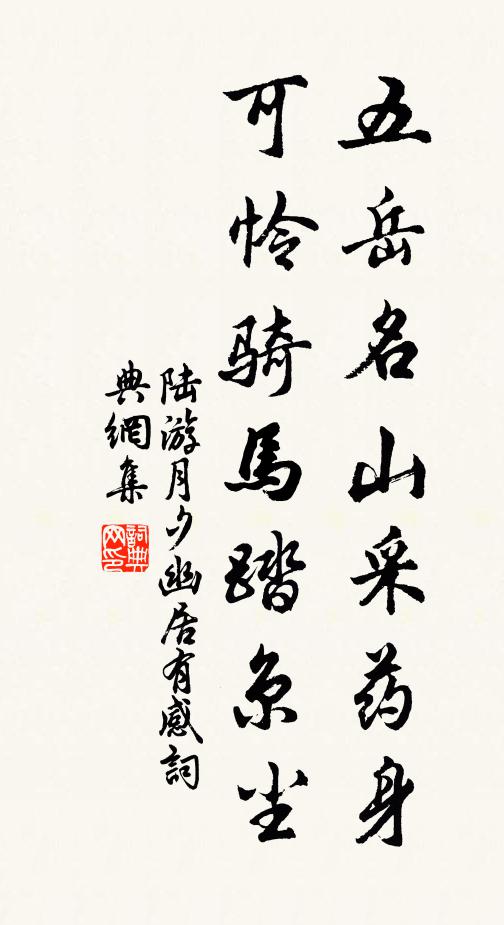 五岳名山采药身
可怜骑馬踏京尘
陆游月夕幽居有感詞
典網集
詞典网印